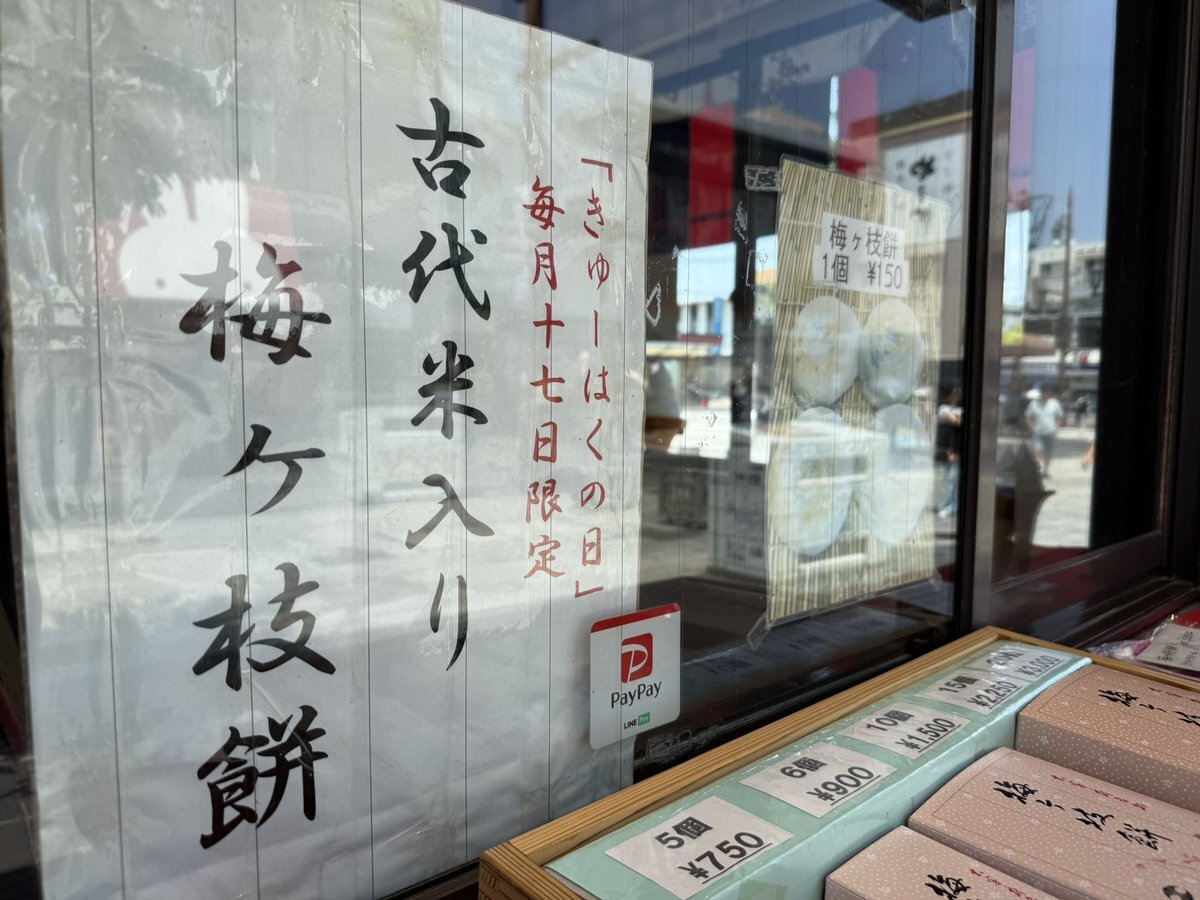 「きゅーはくの日」
毎月十七日限定
古代米入り
梅ヶ枝餅
梅ヶ枝餅
1個 ¥150
PayPay
LINE Pay
5個
¥750
6個
¥900
10個
¥1,500
15個
¥2,250
¥3,000
梅ヶ枝餅